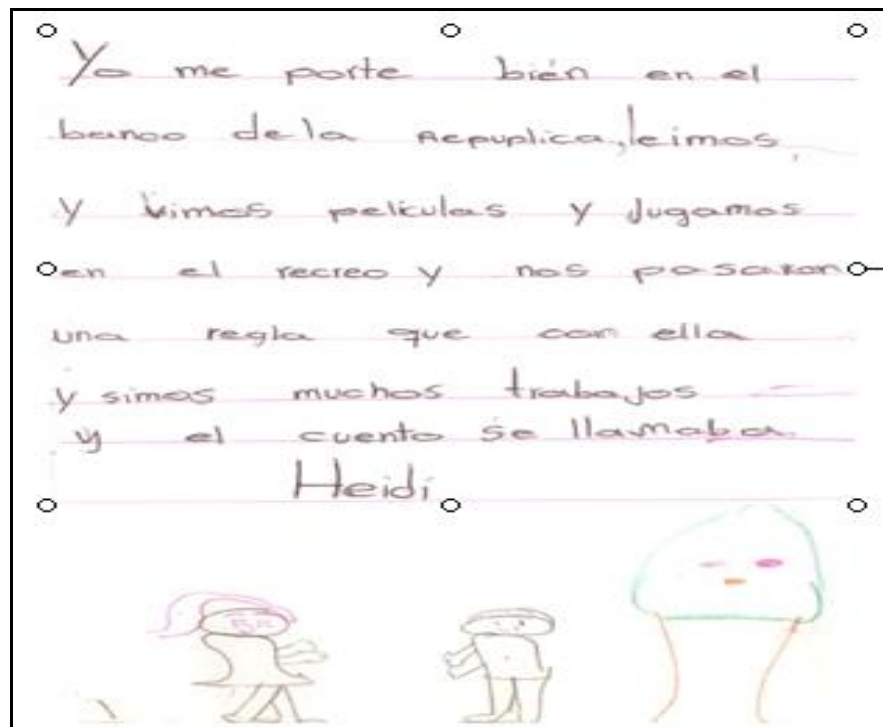 Yo me porte bién en el
banco de la Repuplica, leimos,
y vimos peliculas y Jugamos
en el recreo y nos pasaron
una regla que con ella
y simos muchos trabajos
y el cuento se llamaba
Heidi